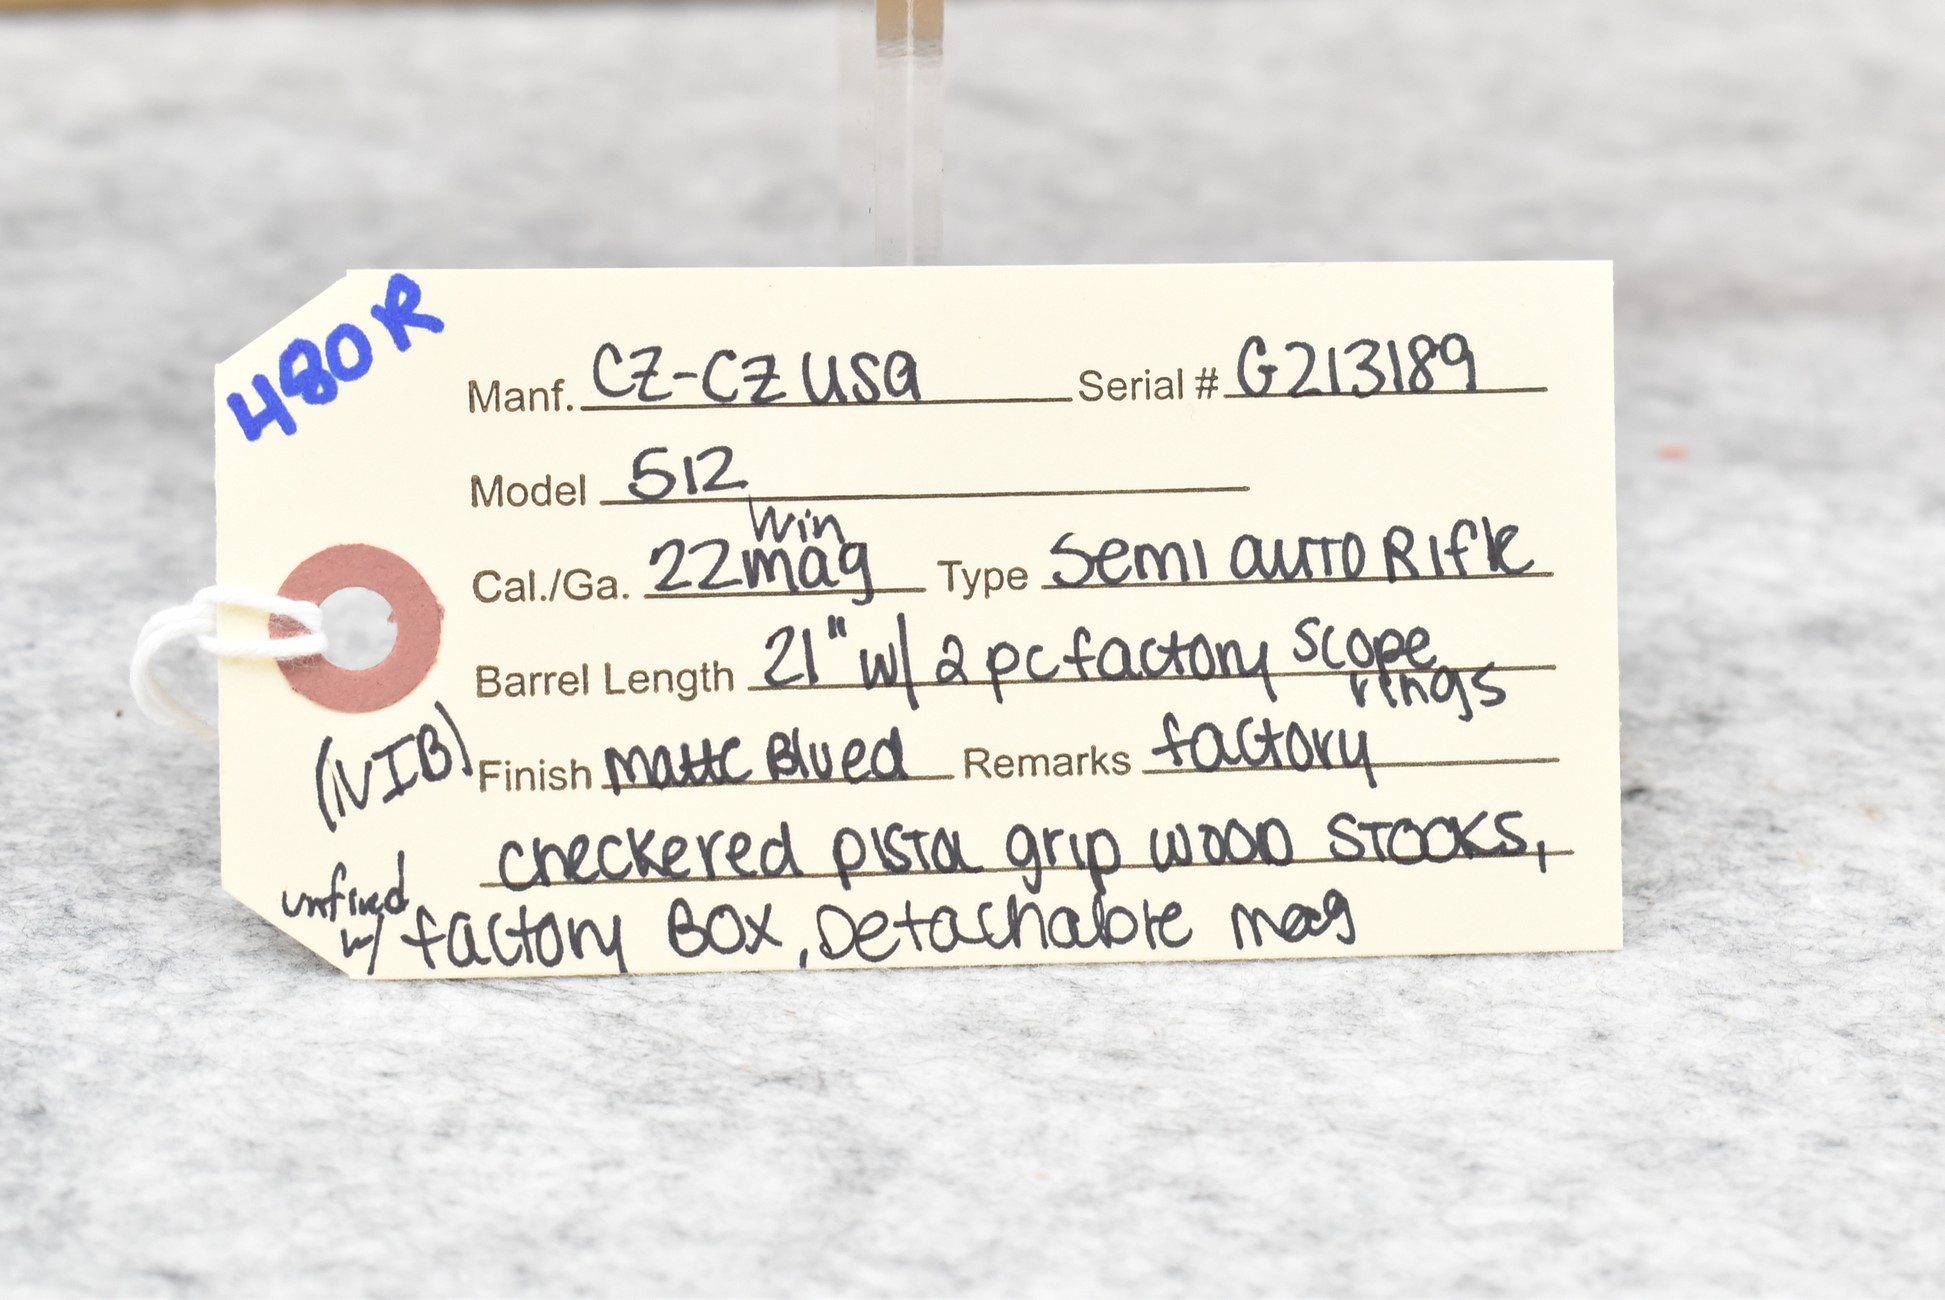 480R
Manf. CZ-CZ USA Serial # G213189
Model 512
Win
Cal./Ga. 22 mag Type Semi Auto Rifle
Barrel Length 21" w/ 2 pc factory scope
rings
(NIB) Finish Matte Blued Remarks factory
checkered pistol grip wood stocks,
unfired
w/ factory Box, Detachable mag